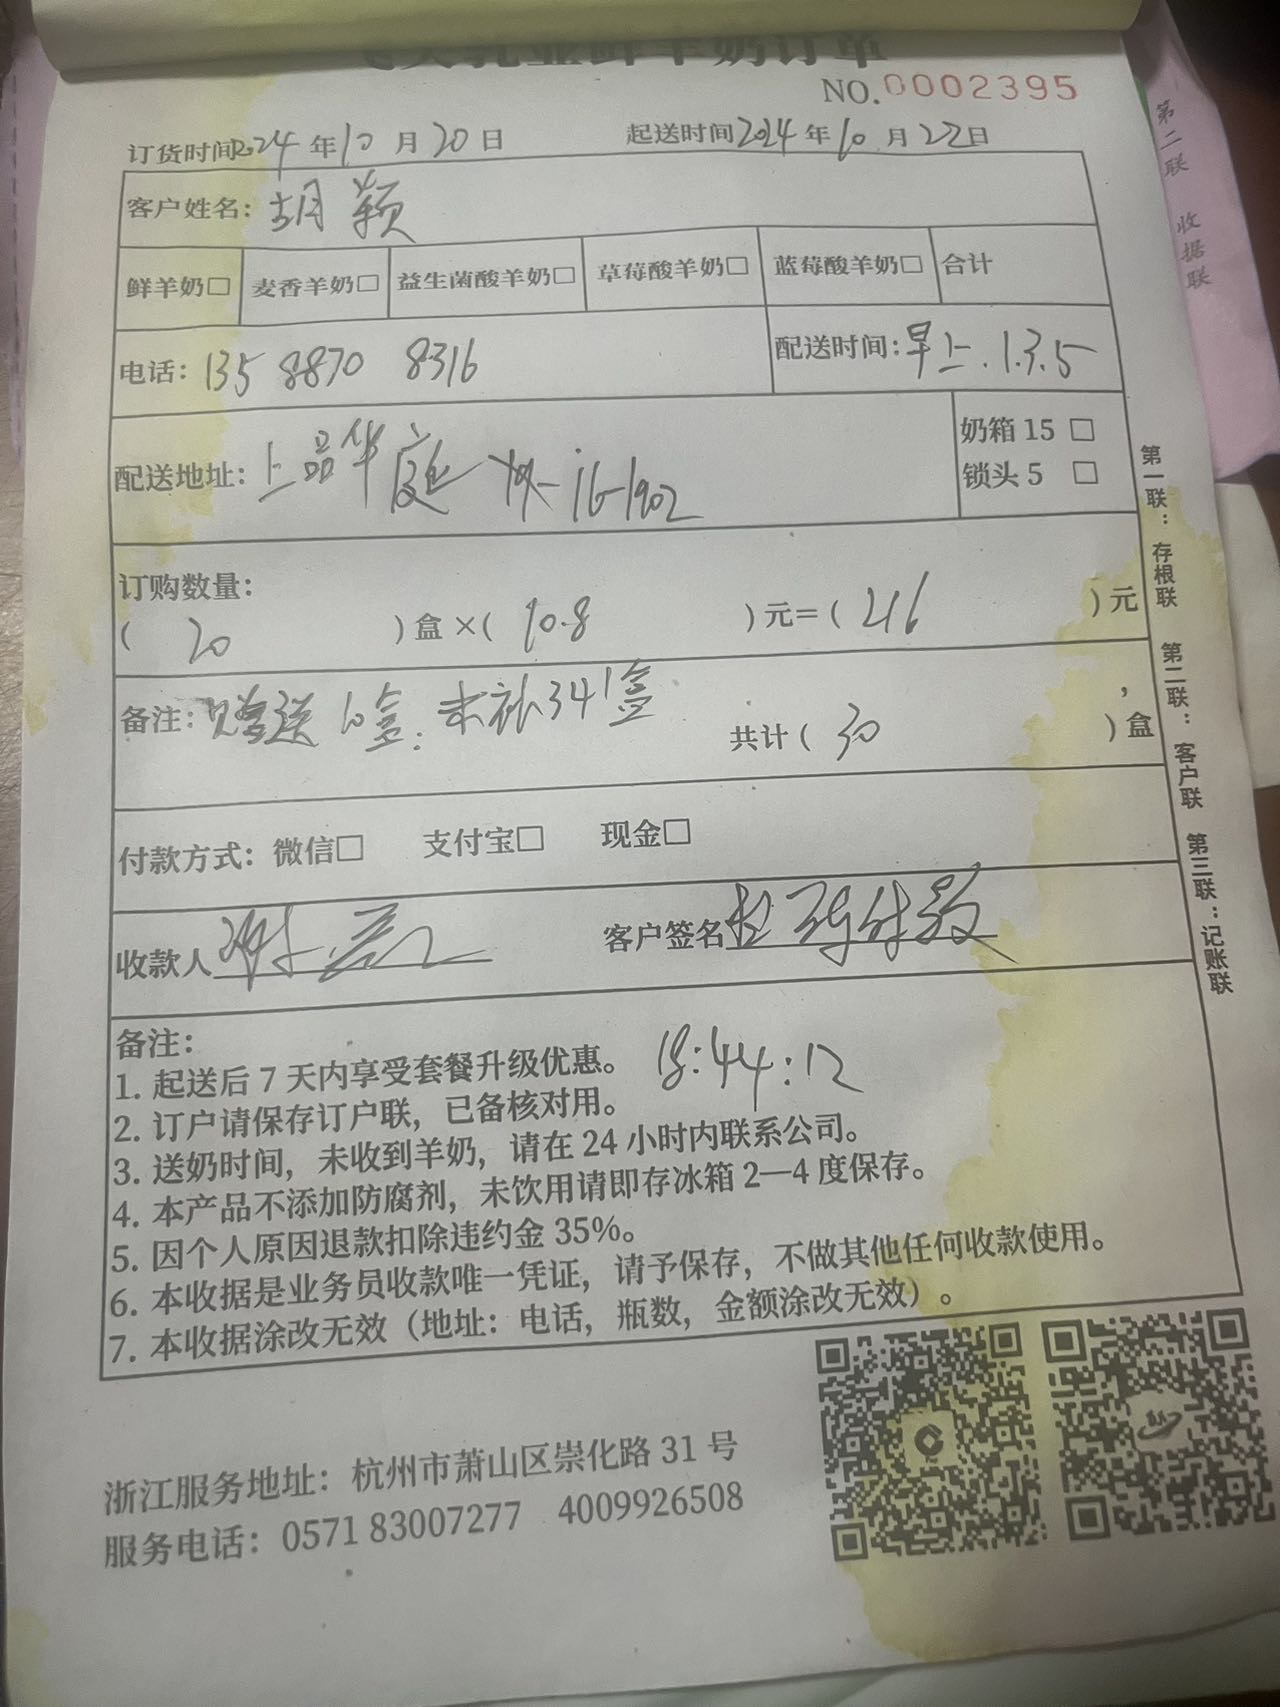 乳业鲜羊奶订单
NO.0002395
订货时间2024年10月20日 起送时间2024年10月22日
客户姓名：胡颖
鲜羊奶□ 麦香羊奶□ 益生菌酸羊奶□ 草莓酸羊奶□ 蓝莓酸羊奶□ 合计
电话：135 8870 8316 配送时间：早上.1.3.5
配送地址：上品华庭 16-1902
奶箱 15 □
锁头 5 □
订购数量：
（ 20 ）盒×（ 10.8 ）元=（ 216 ）元
备注：赠送10盒. 未补341盒 ，
共计（ 30 ）盒
付款方式：微信□ 支付宝□ 现金□
收款人 客户签名
备注：
1. 起送后 7 天内享受套餐升级优惠。 18:44:12
2. 订户请保存订户联，已备核对用。
3. 送奶时间，未收到羊奶，请在 24 小时内联系公司。
4. 本产品不添加防腐剂，未饮用请即存冰箱 2—4 度保存。
5. 因个人原因退款扣除违约金 35%。
6. 本收据是业务员收款唯一凭证，请予保存，不做其他任何收款使用。
7. 本收据涂改无效（地址：电话，瓶数，金额涂改无效）。
浙江服务地址：杭州市萧山区崇化路 31 号
服务电话：0571 83007277 4009926508
第一联：存根联 第二联：客户联 第三联：记账联
第二联 收据联